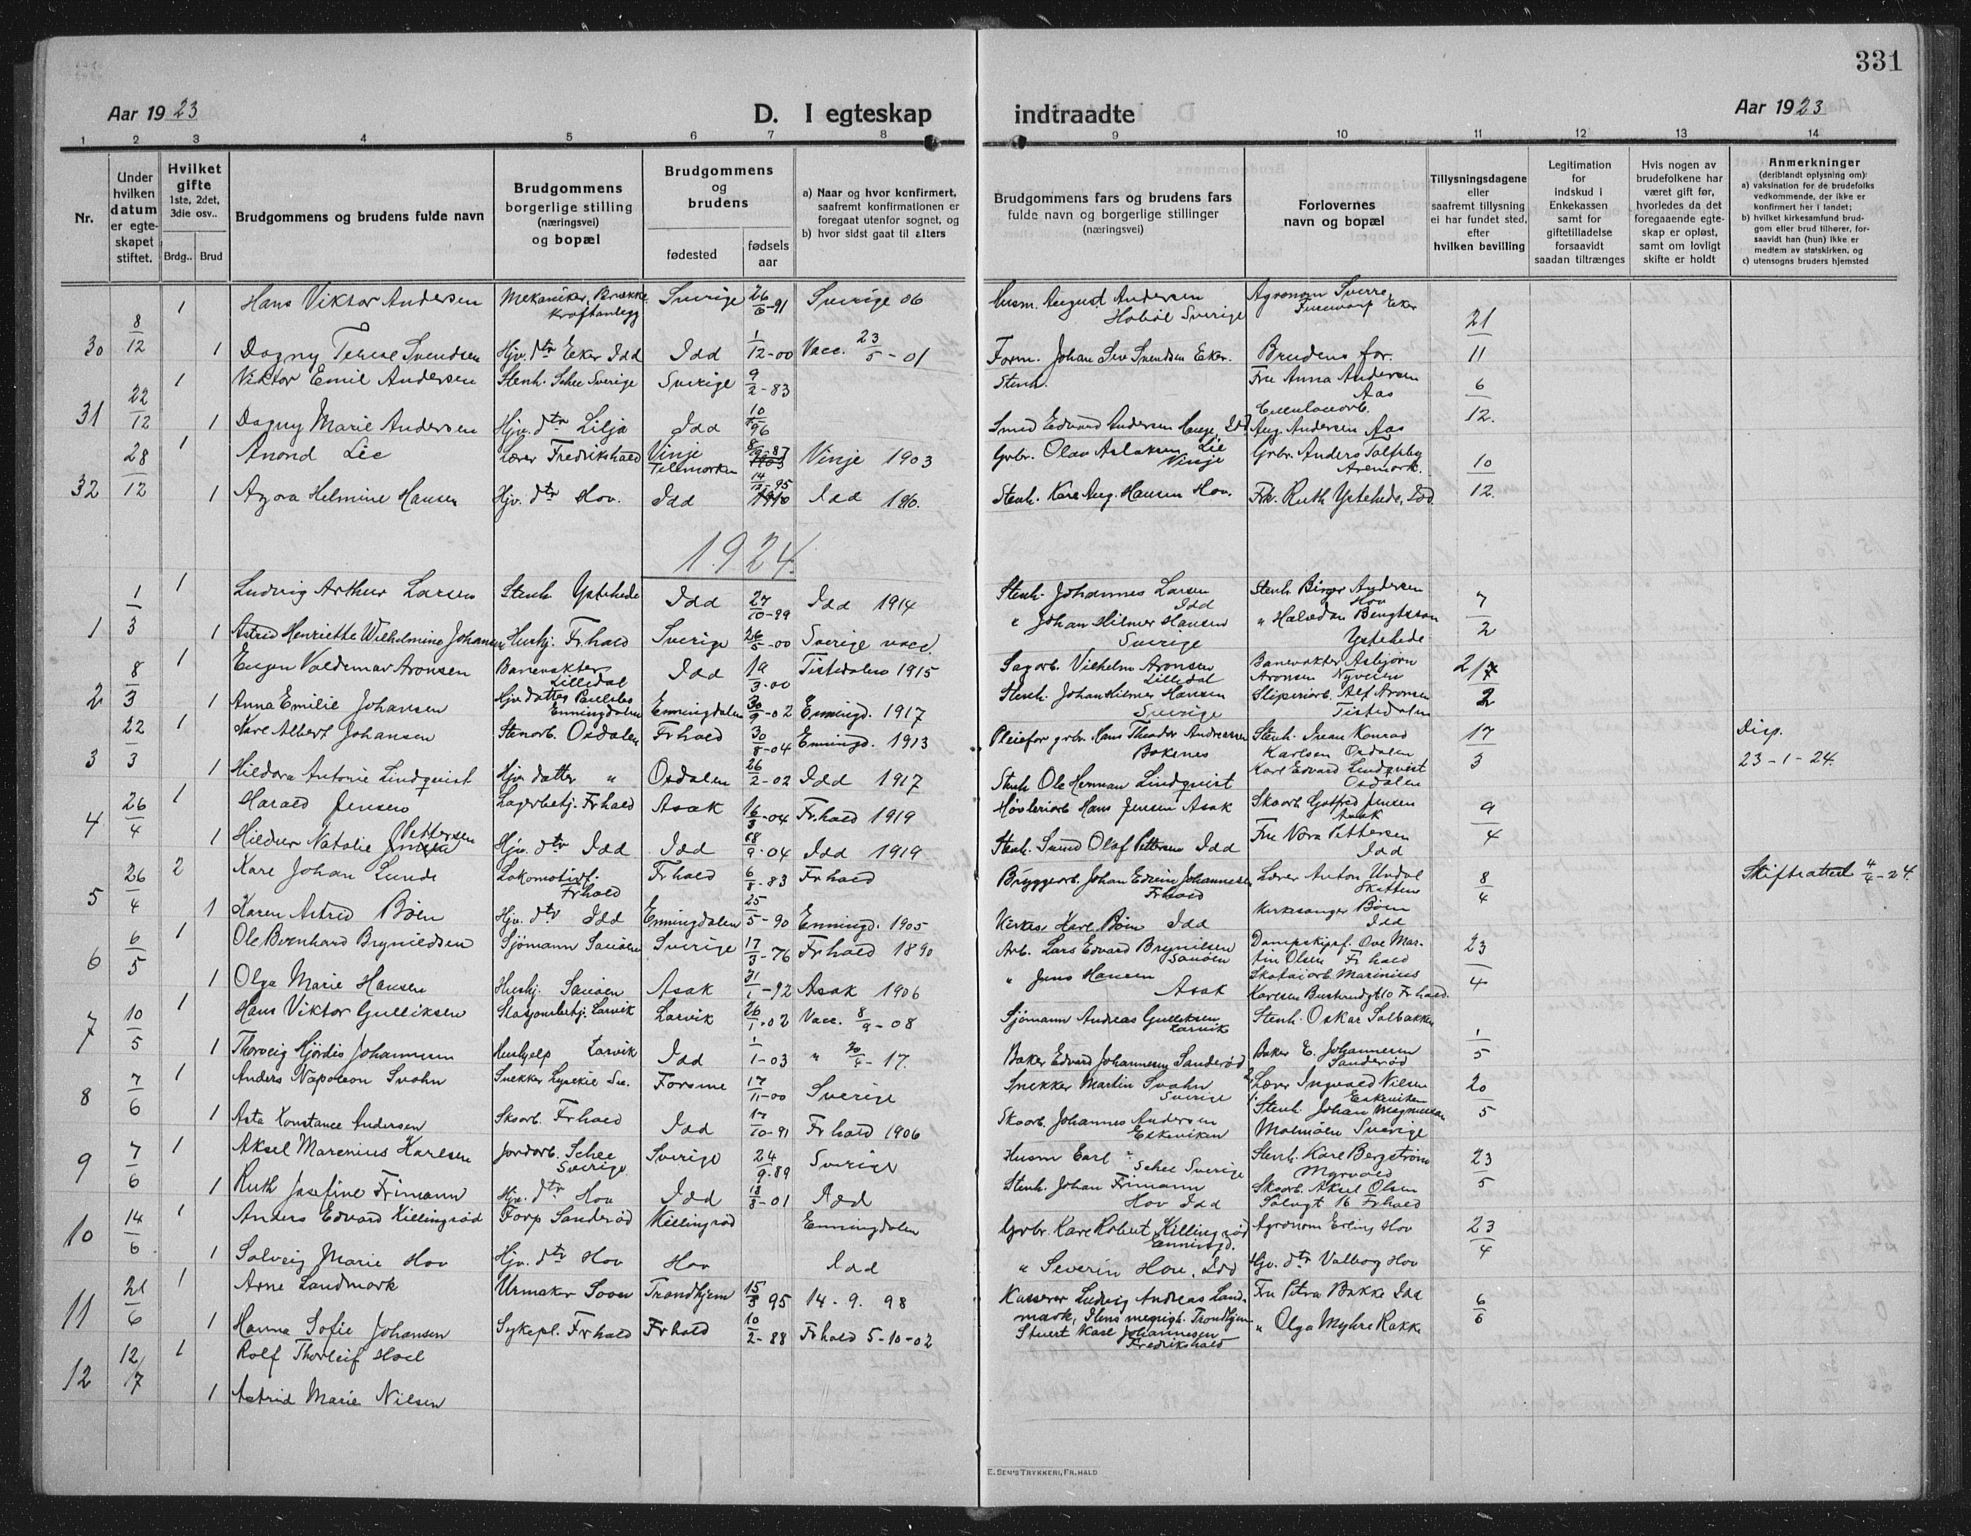 331
Aar 1923
D. I egteskap indtraadte
Aar 1923
1 2 3 4 5 6 7 8 9 10 11 12 13 14
Nr.
Under hvilken datum er egteskapet stiftet.
Hvilket gifte 1ste, 2det, 3die osv..
Brdg.. Brud
Brudgommens og brudens fulde navn
Brudgommens borgerlige stilling (næringsvei) og bopæl
Brudgommens og brudens
fødested
fødsels aar
a) Naar og hvor konfirmert, saafremt konfirmationen er foregaat utenfor sognet, og
b) hvor sidst gaat til alters
Brudgommens fars og brudens fars fulde navn og borgerlige stillinger (næringsvei)
Forlovernes navn og bopæl
Tillysningsdagene eller saafremt tillysning ei har fundet sted, efter hvilken bevilling
Legitimation for indskud i Enkekassen samt for giftetilladelse forsaavidt saadan tiltrænges
Hvis nogen av brudefolkene har været gift før, hvorledes da det foregaaende egteskap er opløst, samt om lovligt skifte er holdt
Anmerkninger (deriblandt oplysning om):
a) vaksination for de brudefolks vedkommende, der ikke er konfirmert her i landet;
b) hvilket kirkesamfund brudgom eller brud tilhører, forsaavidt han (hun) ikke er medlem av statskirken, og
c) utensogns bruders hjemsted
30 8/12 1 Hans Viktor Andersen Mekaniker, Brække kraftanlegg Sverige 26/6-91 Sverige 06 Husm. August Andersen Hobøl Sverige Agronom Sverre Eker 21/11
1 Dagny Terese Svendsen Hjv. dtr Eker Idd Idd 1/12-00 Vacc. 23/5-01 Form. Johan Sev Svendsen Eker. Brudens far.
31 22/12 1 Viktor Emil Andersen Stenh. Schee Sverige Sverige 9/2-83 Stenh. Fru Anna Andersen Aas 6/12.
1 Dagny Marie Andersen Hjv. dtr Lilja Idd 10/10 96 Smed Edvard Andersen Idd Aug. Andersen Aas
32 28/12 1 Anond Lie Lærer Fredrikshald Vinje Telemarken 8/9-87 Vinje 1903 Grbr. Olav Aslaksen Lie Vinje Grbr. Anders Tolfsby Aremark. 10/12.
1 Agora Helmine Hansen Hjv. dtr Hov. Idd 14/12-95 Idd 1910. Stenh. Karl Aug. Hansen Hov. Frk. Ruth Ystehede, Idd
1924.
1 1/3 1 Ludvig Arthur Larsen Stenh Ystehede Idd 27/10-99 Idd 1914 Stenh. Johannes Larsen Idd Stenh Birger Andersen Hov 7/2
1 Astrid Henriette Wilhelmine Johansen Hushj. Fr.hald Sverige 26/5-00 Sverige vacc. " Johan Hilmer Hansen Sverige " Halvdan Bengtsson Ystehede
2 8/3 1 Eugen Valdemar Aronsen Banevakter Lilledal Idd 19/3-00 Tistedalen 1915 Sagarb. Vilhelm Aronsen Lilledal Banevakter Asbjørn Aronsen Nyveien 2
1 Anna Emilie Johansen Hjv datter Enningdalen Enningdalen 30/9-02 Enningd. 1917 Stenh. Johan Hilmer Hansen Sverige Sliperiarb. Alf Aronsen Tistedalen
3 22/3 1 Karl Albert Johansen Stenarb. Osdalen Fr hald 30/8-04 Enningd. 1913 Pleiefar grbr. Hans Theodor Andreassen Bakenes Stenh. Konrad Karlsen Osdalen 17/3 Disp. 23-1-24.
1 Hildora Antonie Lindquist Hjv datter " Osdalen 26/2-02 Idd 1917 Stenh Ole Herman Lindquist Karl Edvard Lindqvist Osdalen
4 26/4 1 Harald Jensen Lagerbetj. Fr hald Asak 16/3-04 Fr.hald 1919 Høvleriarb Hans Jensen Asak Skoarb Gotfred Jensen Asak 9/4
1 Hildur Natalie Pettersen Hjv. dtr Idd Idd 18/9-04 Idd 1919 Stenh. Svend Olaf Pettersen Idd Fru Nora Pettersen Idd
5 26/4 2 Karl Johan Lunde Lokomotivf. Fr hald Fr hald 6/8-83 Fr hald Bryggearb. Johan Edvin Johannesen Fr hald Lærer Anton Undal Skatten 8/4 Skifteattest 4/4-24.
1 Karen Astrid Bøen Hjv. dtr Idd Enningdalen 25/5-90 Enningd. 1905 Kirkes. Karl Bøen Idd Kirkesanger Bøen Idd
6 6/5 1 Ole Bernhard Brynildsen Sjømann Sauøen Sverige 17/3-76 Fr hald 1890 Arb. Lars Edvard Brynilsen Sauøen Dampskipsf. Ove Martin Olsen Fr hald 23/4
1 Olga Marie Hansen Hushj. Sauøen Asak 21/1-92 Asak 1906 " Jens Hansen Asak Skotøiarb Marinius Karlsen Buskrudgt 10 Fr hald.
7 10/5 1 Hans Viktor Gulliksen Stasjonsbetj. Larvik Larvik 26/1-02 Vacc. 8/9-08 Sjømann Andreas Gulliksen Larvik Stenh. Oskar Solbakken 1/5
1 Thorveig Hjørdis Johannesen Hushjelp Larvik Idd 1/1-03 " 20/4-17. Baker Edvard Johannesen Sanderød Baker E. Johannesen Sanderød
8 7/6 1 Anders Napoleon Svahn Snekker Lysekil Sv. Forsme 17/11-00 Sverige Snekker Martin Svahn Sverige Lærer Ingvald Nilsen Eskeviken 20/5
1 Asta Konstance Andersen Skoarb. Fr hald Idd 17/10-91 Fr hald 1906 Skoarb. Johannes Andersen Eskeviken Stenh. Johan Magnusson Malmøen Sverige
9 7/6 1 Aksel Marenius Karlsen Jordarb. Schee Sverige Sverige 24/9-89 Sverige Husm Carl " Schee Sverige Stenh. Karl Bergstrøm Myrvold 23/5
1 Ruth Josefine Frimann Hjv. dtr Hov Idd 18/8-01 Idd Stenh. Johan Frimann Hov Idd Skoarb. Aksel Olsen Sølvgt 16 Fr hald
10 14/6 1 Anders Edvard Killingrød Forp Sanderød Killingrød Enningdalen Grbr. Karl Robert Killingrød Enningd. Agronom Erling Hov 23/4
1 Solveig Marie Hov Hjv. dtr Hov Hov Idd " Severin Hov, Idd Hjv. dtr Valborg Hov
11 21/6 1 Arne Landmark Urmaker Soon Trondhjem 15/3 95 14-9.98 Kasserer Ludvig Andreas Landmark, Ilens menigh. Trondhjem Fru Petra Bakke Idd 6/6
1 Hanna Sofie Johansen Sykepl. Fr hald Fr hald 10/2-88 Fr hald 5-10-02 Stuert Karl Johannesen Fredrikshald " Olga Myhre Bakke
12 12/7 1 Rolf Thorleif Hoel
1 Astrid Marie Nilsen
E. SEM'S TRYKKERI, FR.HALD